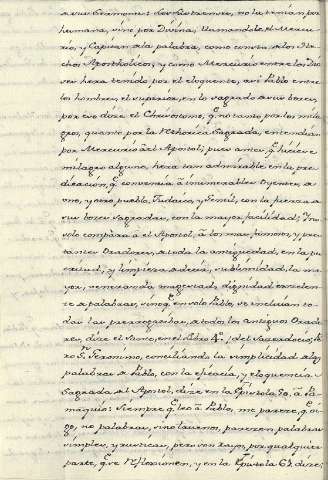 a sus Sermones: los oÿentes, no la tenían por
humana, sino por Divina, llamandole el Mercu-
rio, y Capitan de la palabra, como consta de los He-
chos Apostholicos, y como Mercurio entre los Dio
ses hera tenido por el eloquente, asi Pablo entre
los hombres, el superior, en lo sagrado de sus voces,
por eso dize el Chrisostomo, q.e no tanto por los mila-
gros, quanto por la Rethorica Sagrada, entendian
por Mercurio al Apostol; pues antes q.e hiciese
milagro alguno, hera tan admirable en la pre-
dicacion, q.e convencia a innumerables oyentes, de
uno, y otro pueblo, Judaico, y Gentil, con la fuerza de
sus voces Sagradas, con la mayor facilidad;
solo compara a el Apostol, a los mas famosos, y pre-
stantes Oradores, de toda la antiguedad, en la pu-
reza, y limpieza de decir, sublimidad, la ma-
yor, veneranda magestad, dignidad excelen-
te de palabras, sino q.e en solo Pablo, se incluían to-
das las prerrogativas, de todos, los antiguos Orado-
res, dize el Santo, en el Libro 4.o del Sacerdocio;
S.n Geronimo, conciliando la simplicidad de las
palabras de Pablo, con la eficacia, y eloquencia
Sagrada del Apostol, dize en la Epistola 50. a Pa-
maquio: Siempre q.e leo a Pablo, me parece, q.e oi-
go, no palabras, sino truenos, parecen, palabras
simples, y rusticas, pero son rayos, por qualquier
parte, q.e se reflexionen, y en la Epistola 61. dize: